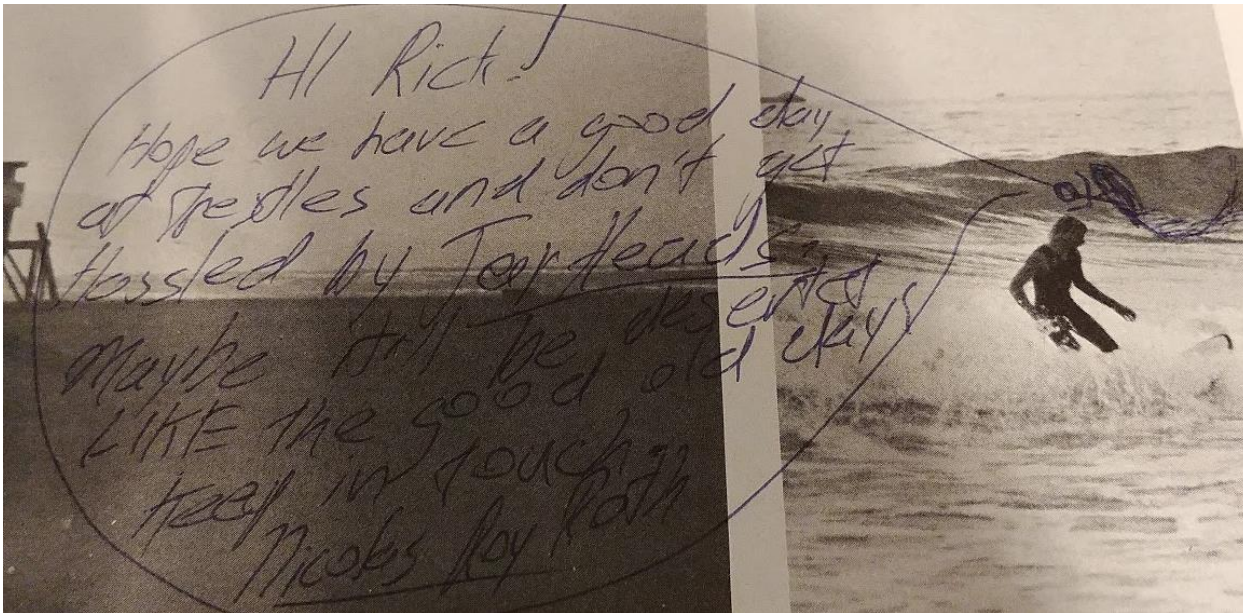 HI Rich!
Hope we have a good day
at Trestles and don't get
Hassled by Jar Heads,
Maybe it'll be deserted
LIKE the good old days
keep in touch -
Nicolas Roy Roth